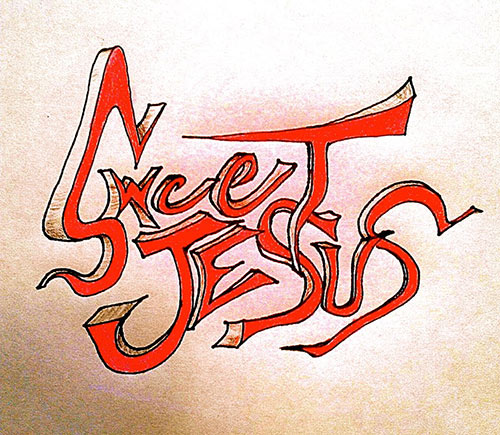 SweeT
JESUS